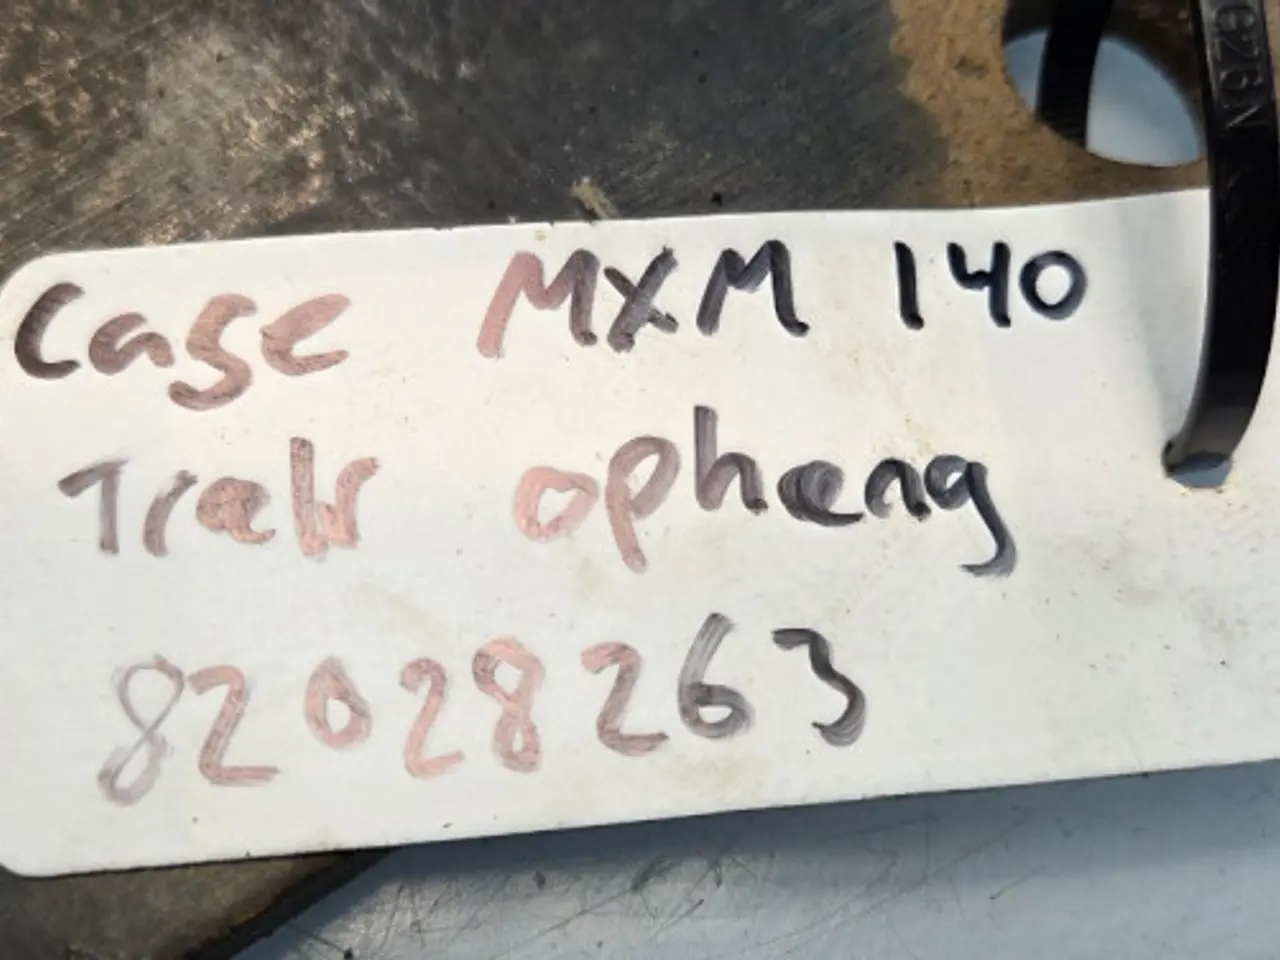 Case MXM 140
Trek ophang
82028263